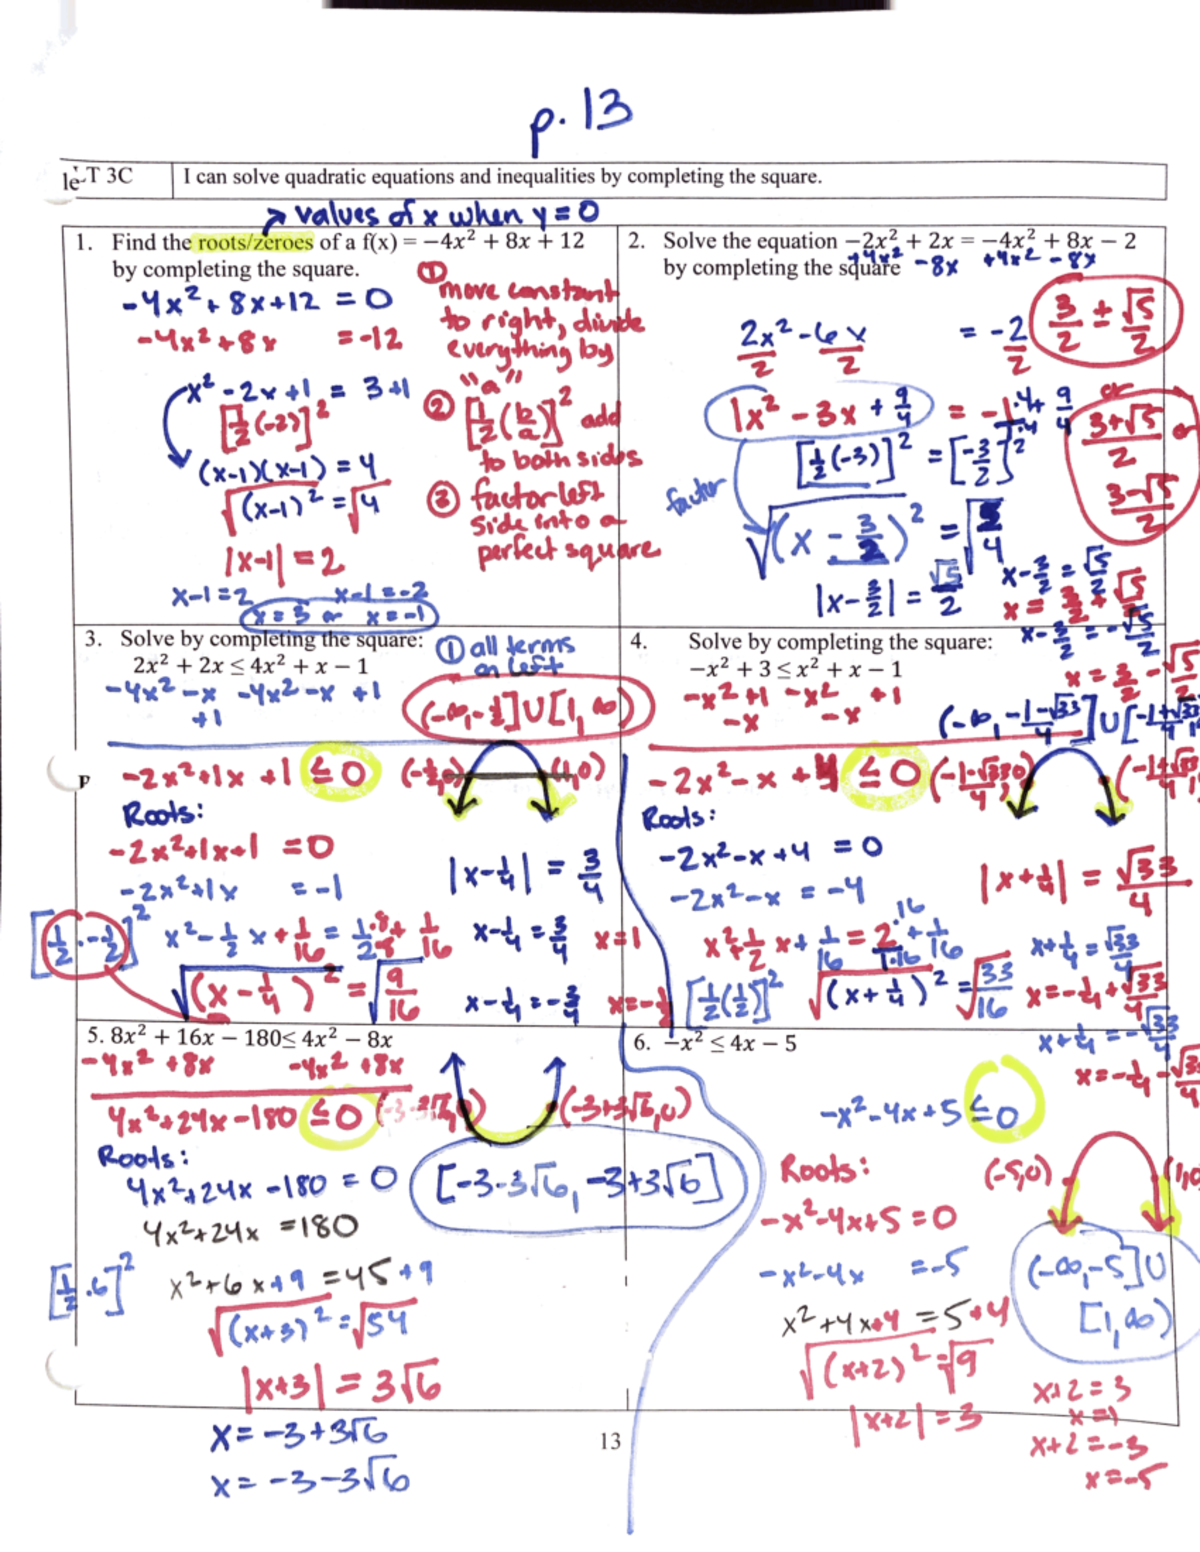 p. 13
LT 3C I can solve quadratic equations and inequalities by completing the square.
→ values of x when y = 0
1. Find the roots/zeroes of a f(x) = −4x² + 8x + 12
by completing the square.
-4x² + 8x + 12 = 0
-4x² + 8x = -12
x² - 2x + 1 = 3 + 1
[½(-2)]²
(x-1)(x-1) = 4
√(x-1)² = √4
|x-1| = 2
x-1=2 x-1=-2
x = 3 or x = -1
① move constant
to right, divide
everything by
"a"
② [½(b/a)]² add
to both sides
③ factor left
side into a
perfect square
2. Solve the equation −2x² + 2x = −4x² + 8x − 2
by completing the square
+4x² -8x +4x² -8x
2x²/2 - 6x/2 = -2/2
1x² - 3x + 9/4 = -1·4/1·4 + 9/4
[½(-3)]² = [-3/2]²
factor
√(x - 3/2)² = √5/4
|x - 3/2| = √5/2
x - 3/2 = √5/2
x = 3/2 + √5/2
x - 3/2 = -√5/2
x = 3/2 - √5/2
3/2 ± √5/2
or
3+√5/2 or
3-√5/2
3. Solve by completing the square:
2x² + 2x ≤ 4x² + x − 1
-4x² - x -4x² - x +1
+1
① all terms
on left
(-∞, -½] U [1, ∞)
-2x² + 1x + 1 ≤ 0 (-½, 0) (1, 0)
Roots:
-2x² + 1x + 1 = 0
-2x² + 1x = -1
[½ · -½]² x² - ½x + 1/16 = 1·8/2·8 + 1/16
√(x - ¼)² = √9/16
|x - ¼| = ¾
x - ¼ = ¾ x = 1
x - ¼ = -¾ x = -½
4. Solve by completing the square:
−x² + 3 ≤ x² + x − 1
-x² +1 -x² +1
-x -x
(-∞, -1-√33/4] U [-1+√33/4,
-2x² - x + 4 ≤ 0 (-1-√33/4, 0) (-1+√33/4,
Roots:
-2x² - x + 4 = 0
-2x² - x = -4
x² + ½x + 1/16 = 2·16/1·16 + 1/16
[½(½)]² √(x + ¼)² = √33/16
|x + ¼| = √33/4
x + ¼ = √33/4
x = -¼ + √33/4
x + ¼ = -√33/4
x = -¼ - √33/4
5. 8x² + 16x − 180 ≤ 4x² − 8x
-4x² + 8x -4x² + 8x
4x² + 24x - 180 ≤ 0 (-3-3√6, 0) (-3+3√6, 0)
Roots:
4x² + 24x - 180 = 0
[-3-3√6, -3+3√6]
4x² + 24x = 180
[½ · 6]² x² + 6x + 9 = 45 + 9
√(x+3)² = √54
|x+3| = 3√6
x = -3 + 3√6
x = -3 - 3√6
6. −x² ≤ 4x − 5
-x² - 4x + 5 ≤ 0
Roots: (-5, 0) (1, 0
-x² - 4x + 5 = 0
-x² - 4x = -5
(-∞, -5] U
[1, ∞)
x² + 4x + 4 = 5 + 4
√(x+2)² = √9
|x+2| = 3
x+2 = 3
x = 1
x+2 = -3
x = -5
13